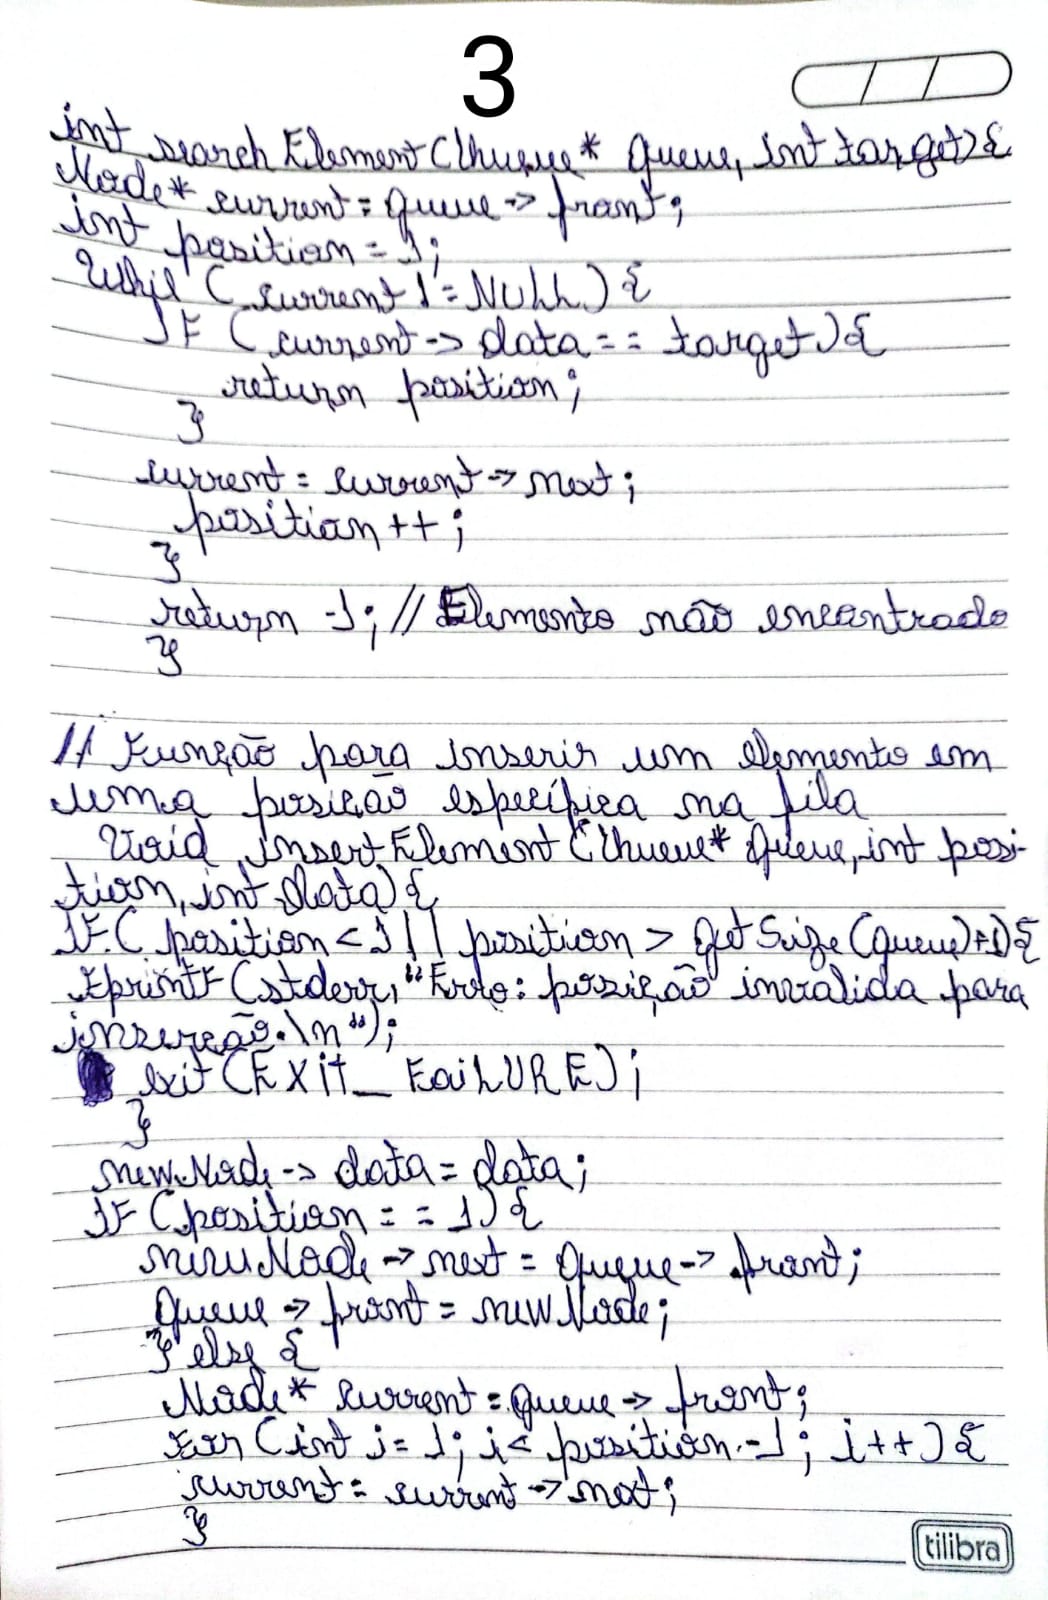 3
int searchElement(Queue* queue, int target){
Node* current = queue -> front;
int position = 1;
Whil (current != NULL) {
IF (current -> data == target){
return position;
}
current = current -> next;
position ++;
}
return -1; // Elemento não encontrado
}
// Função para inserir um elemento em
uma posição específica na fila
Void insertElement (Queue* queue, int posi-
tion, int data){
IF( position < 1 || position > getSize(queue)+1){
FprintF (stderr, "Erro: posição invalida para
inserção.\n");
exit (EXit_FaiLURE);
}
newNode -> data = data;
IF (position == 1) {
newNode -> next = queue -> front;
queue -> front = newNode;
} else {
Node* current = queue -> front;
For (int i = 1; i < position -1; i++) {
current = current -> next;
}
tilibra